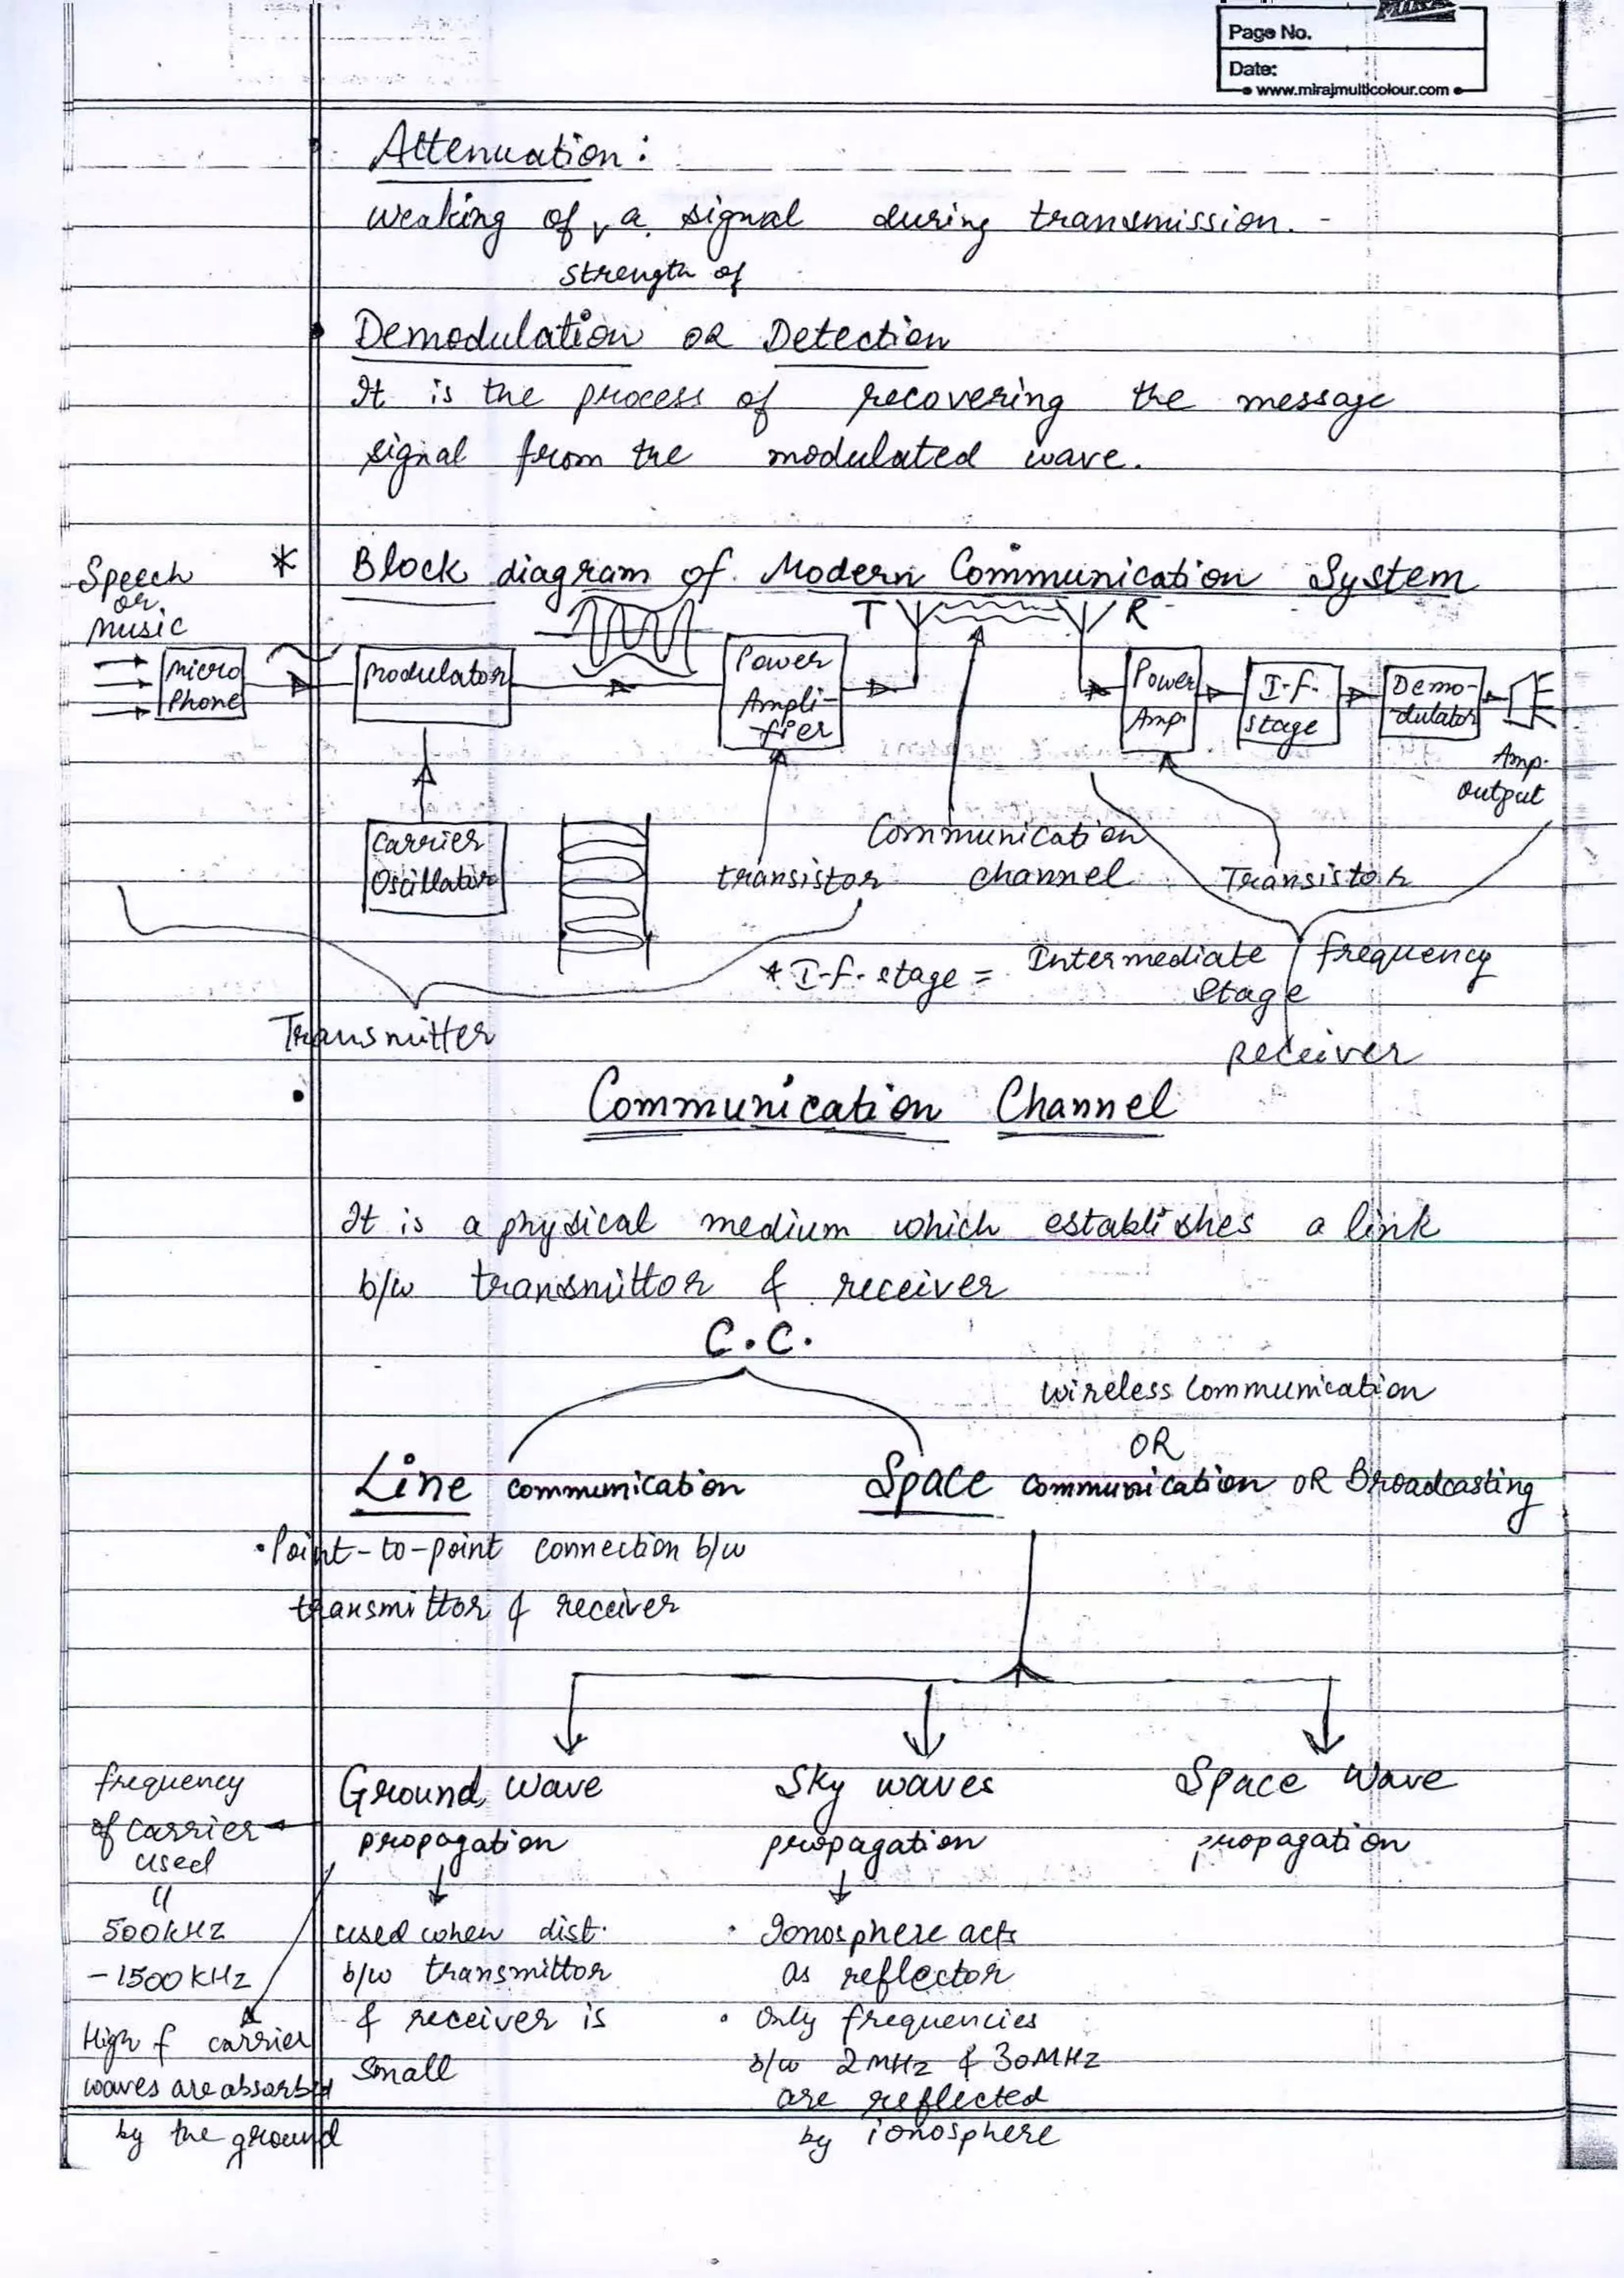 Page No.
Date:
www.mirajmulticolour.com
Attenuation :
weaking of a signal during transmission.
strength of
Demodulation OR Detection
It is the process of recovering the message
signal from the modulated wave.
* Block diagram of Modern Communication System
Speech
or
music
T R
Micro
Phone
Modulator
Power
Ampli-
fier
Power
Amp.
I-f.
stage
Demo-
dulator
Amp.
output
Carrier
Oscillator
transistor
Communication
channel
Transistor
* I-f. stage = Intermediate frequency
stage
Transmitter
receiver
Communication Channel
It is a physical medium which establishes a link
b/w transmittor & receiver
C.C.
wireless Communication
OR
Line communication
Space communication OR Broadcasting
• Point-to-point connection b/w
transmittor & receiver
Ground wave
propagation
Sky waves
propagation
Space wave
propagation
frequency
of carrier
used
500kHz
- 1500 KHz
High f carrier
waves are absorbed
by the ground
used when dist.
b/w transmittor
& receiver is
small
• Ionosphere acts
as reflector
• Only frequencies
b/w 2MHz & 30MHz
are reflected
by ionosphere